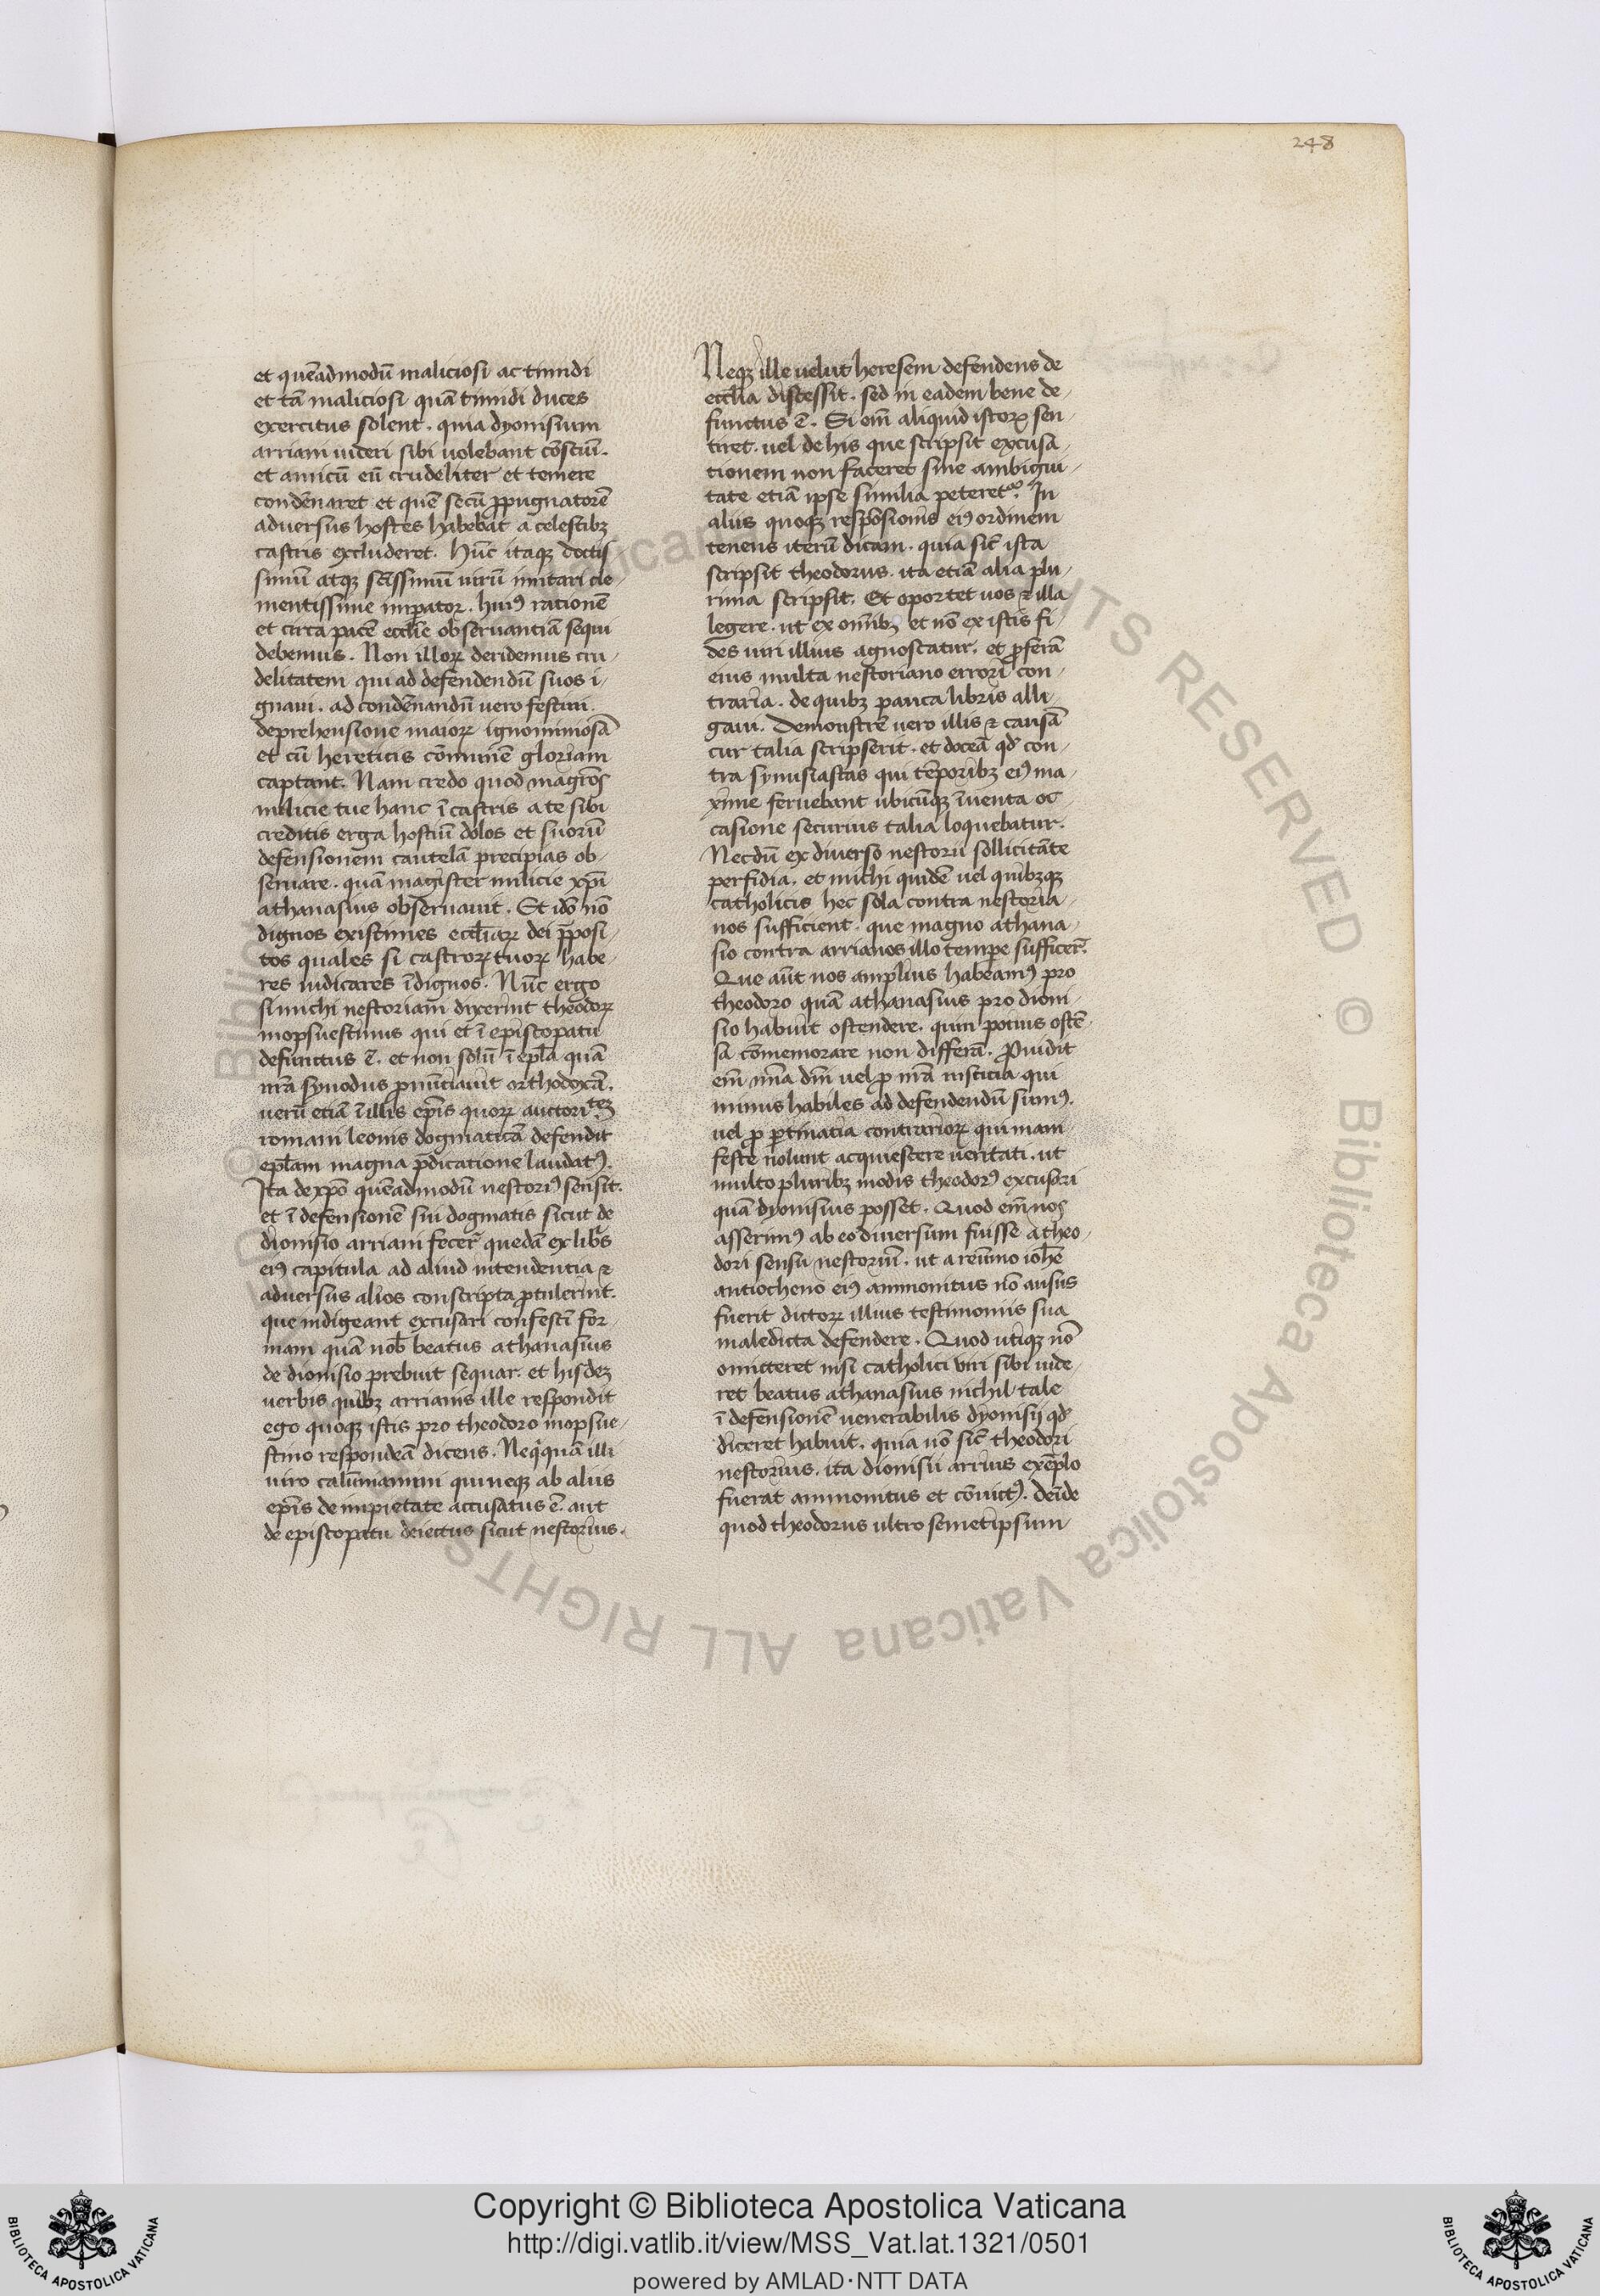 248
et quēadmodū maliciosi ac timidi
et tā maliciosi quā timidi duces
exercitus solent. quia dyonisium
arriani uideri sibi uolebant cōsciū.
et amicū eū crudeliter et temere
condēnaret et quē secū ꝓpugnatorē
aduersus hostes habebat a celestibꝫ
castris excluderet. Hūc itaqꝫ doctis
simū atqꝫ sc̄issimū uirū imitari cle-
mentissime imꝑator. huiꝰ rationē
et circa pacē eccl̄ie obseruantiā sequi
debemus. Non illoꝝ deridemus cru-
delitatem qui ad defendendū suos i-
gnaui. ad condēnandū uero festini
deprehensione maioꝝ ignominiosā
et cū hereticis cōmunē gloriam
captant. Nam credo quod magr̄os
milicie tue hanc ī castris a te sibi
creditis erga hostiū dolos et suorū
defensionem cautelā precipias ob-
seruare. quā magister milicie xp̄i
athanasius obseruauit. Et idō nō
dignos existimes eccl̄iaꝝ dei p̄posi-
tos quales si castroꝝ tuoꝝ habe-
res iudicares īdignos. Nūc ergo
si michi nestoriani dixerint theodoꝝ
mopsuestinus qui et ī episcopatu
defunctus ē. et non solū ī ep̄la quā
nr̄a synodus pronūciauit orthodoxā.
uerū etiā ī illis ep̄is quoꝝ auctoritꝫ
romani leonis dogmaticā defendit
epl̄am magna p̄dicatione laudatꝰ.
Ita de xp̄o quēadmodū nestoriꝰ sensit.
et ī defensionē sui dogmatis sicut de
dionisio arriani fecer̄ quedā ex libr̄s
eiꝰ capitula ad aliud intendentia ⁊
aduersus alios conscripta ꝓtulerint.
que indigeant excusari confestī for-
mam quā nob̄ beatus athanasius
de dionisio prebuit sequar. et hisdeꝫ
uerbis quibꝫ arrianis ille respondit
ego quoqꝫ istis pro theodoro mopsue-
stino respondeā dicens. Neq̄quā illi
uiro calūniamini qui neqꝫ ab aliis
ep̄is de impietate accusatus ē. aut
de episcopatu deiectus sicut nestorius.
Neqꝫ ille uelut heresem defendens de
eccl̄ia discessit. sed in eadem bene de-
functus ē. Si em̄ aliquid istoꝝ sen-
tiret. uel de his que scripsit excusa-
tionem non faceret sine ambigui-
tate etiā ipse similia peteret᷑. In
aliis quoqꝫ respōsionis eiꝰ ordinem
tenens iterū dicam. quia sic̄ ista
scripsit theodorus. ita etiā alia plu-
rima scripsit. Et oportet uos ⁊ illa
legere. ut ex om̄ibꝫ et nō ex istis fi-
des uiri illius agnoscatur. et ꝓferā
eius multa nestoriano errori con-
traria. de quibꝫ pauca libris alli-
gaui. Demonstrē uero illis ⁊ causā
cur talia scripserit. et doceā qd̄ con-
tra synusiastas qui tēporibꝫ eiꝰ ma-
xime feruebant ubicūqꝫ īuenta oc-
casione securius talia loquebatur.
Necdū ex diuerso nestorii sollicitāte
perfidia. et michi quidē uel quibꝫqꝫ
catholicis hec sola contra nestoria-
nos sufficient. que magno athana-
sio contra arrianos illo tempe sufficer̄.
Que aūt nos amplius habeamꝰ pro
theodoro quā athanasius pro dioni-
sio habuit ostendere. quin potius ostē-
sa cōmemorare non differā. Prouidit
em̄ mīa dn̄i uel ꝓ nr̄a iusticia qui
minus habiles ad defendendū sumꝰ.
uel ꝓ ꝑtinatia contrarioꝝ qui mani
feste nolunt acquiescere ueritati. ut
multo pluribꝫ modis theodorꝰ excusari
quā dyonisius posset. Quod em̄ nos
asserimꝰ ab eo diuersum fuisse a theo-
dori sensu nestoriū. ut a reūmo ioh̄e
antiocheno eiꝰ ammonitus nō ausus
fuerit dictoꝝ illius testimoniis sua
maledicta defendere. Quod utiqꝫ nō
omitteret nisi catholici uiri sibi uide-
ret beatus athanasius nichil tale
ī defensionē uenerabilis dyonisij qd̄
diceret habuit. quia nō sic̄ theodori
nestorius. ita dionisii arrius exēplo
fuerat ammonitus et cōuictꝰ. deīde
quod theodorus ultro semetipsum
Copyright © Biblioteca Apostolica Vaticana
http://digi.vatlib.it/view/MSS_Vat.lat.1321/0501
powered by AMLAD·NTT DATA
BIBLIOTECA APOSTOLICA VATICANA
BIBLIOTECA APOSTOLICA VATICANA